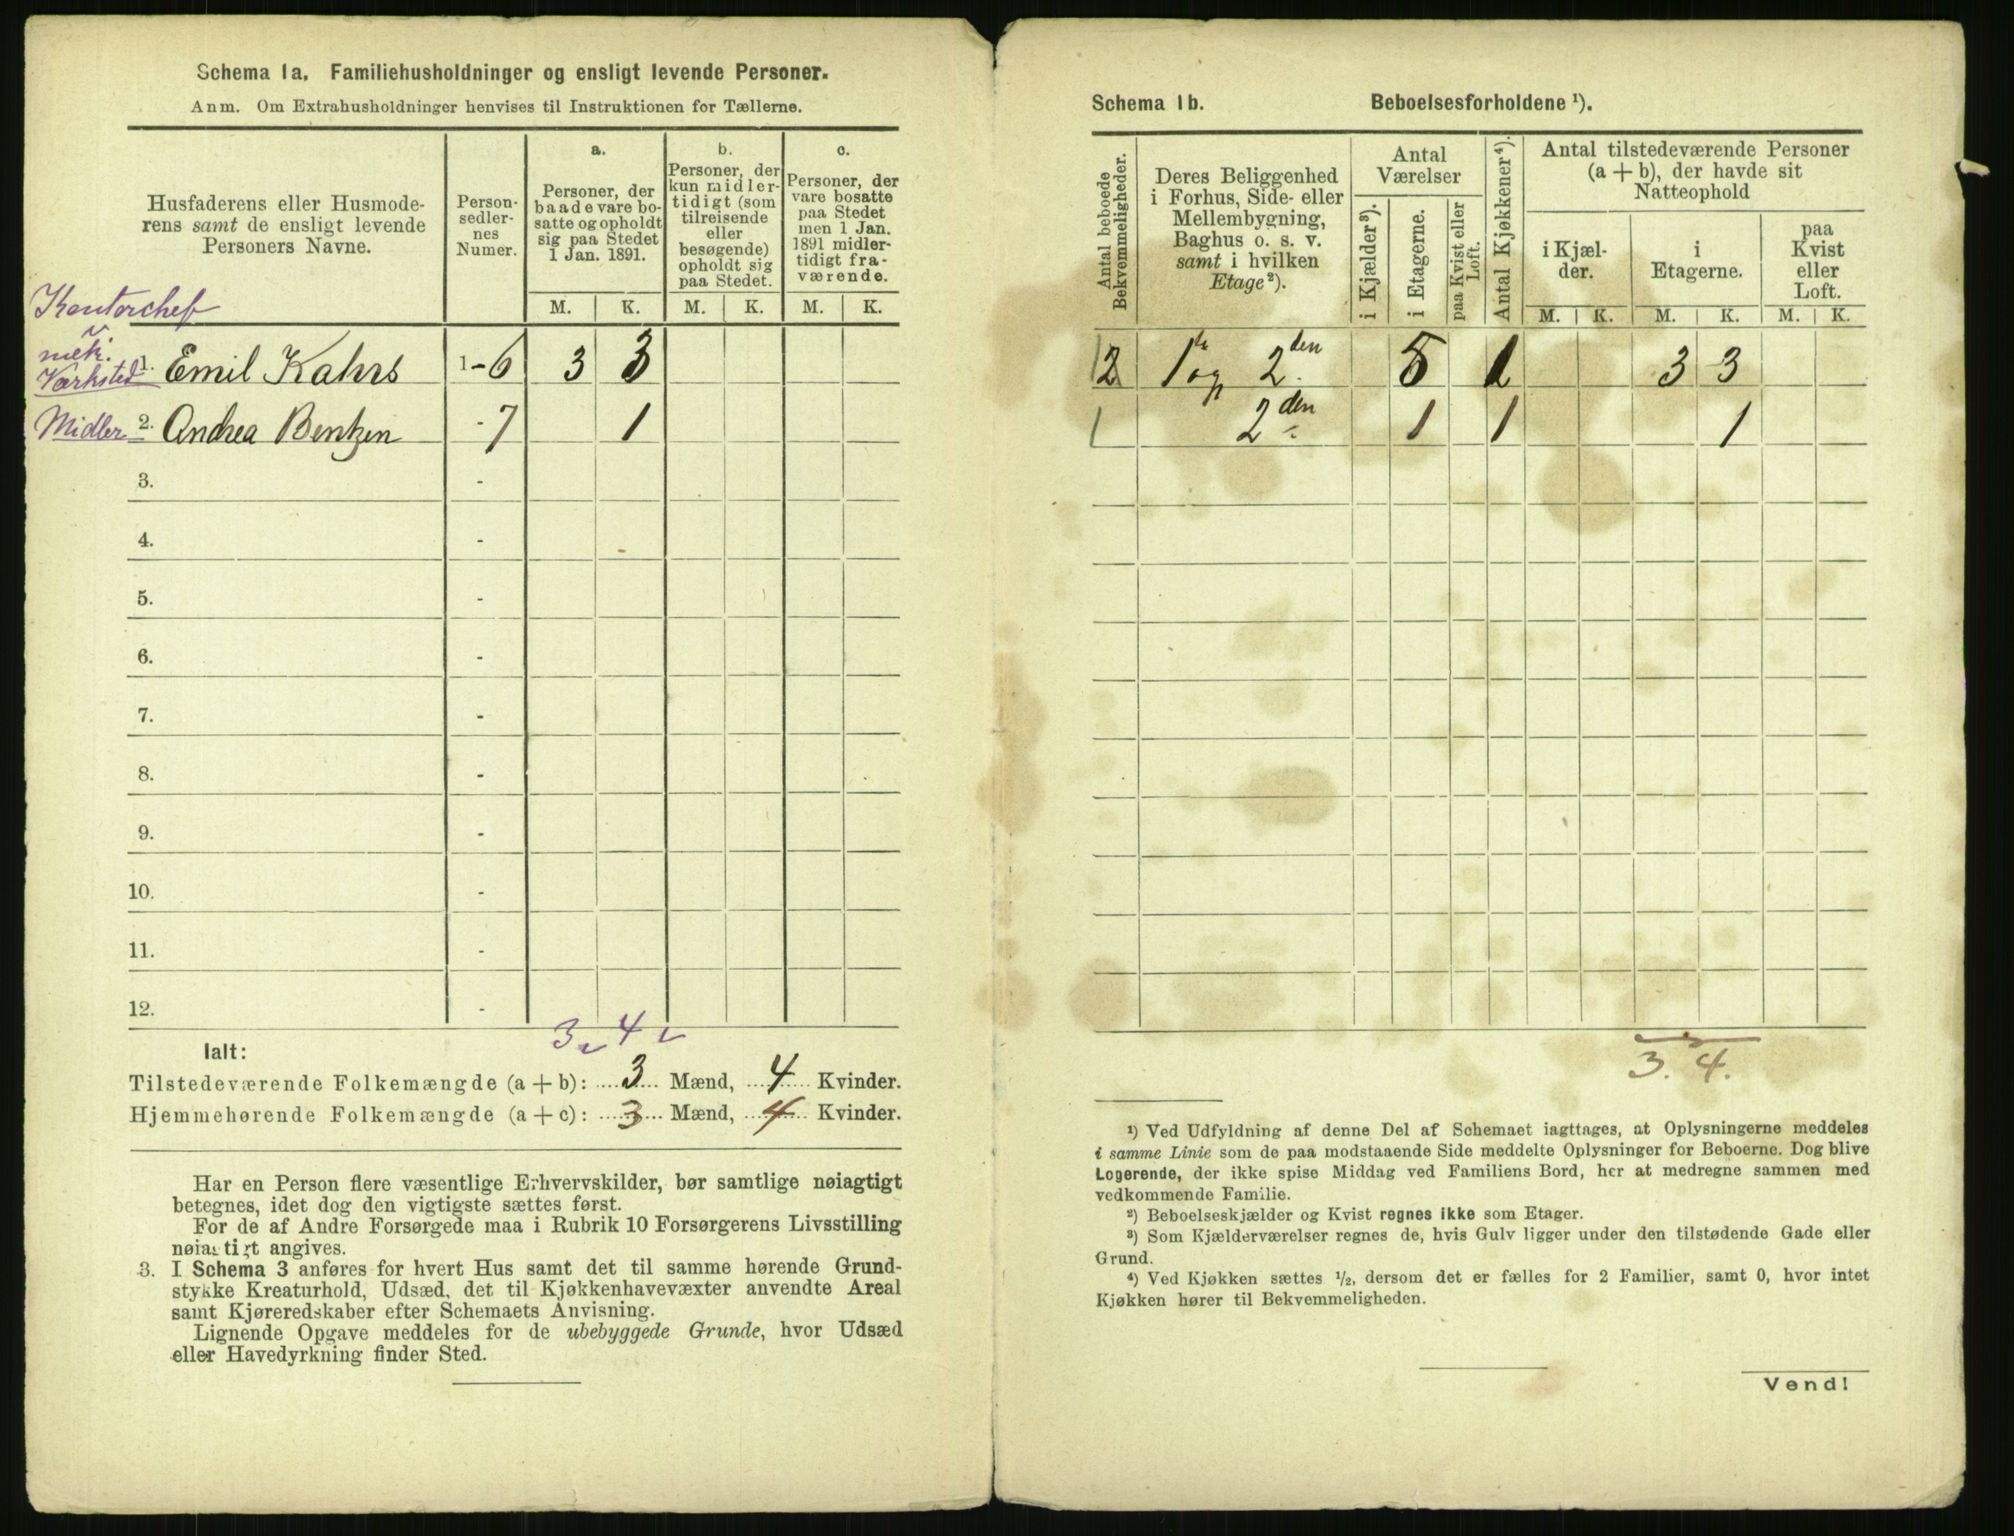 Schema 1a. Familiehusholdninger og ensligt levende Personer.
Anm. Om Extrahusholdninger henvises til Instruktionen for Tællerne.
Husfaderens eller Husmode-
rens samt de ensligt levende
Personers Navne.
Person-
sedler-
nes
Numer.
a.
Personer, der
baade vare bo-
satte og opholdt
sig paa Stedet
1 Jan. 1891.
b.
Personer, der
kun midler-
tidigt (som
tilreisende
eller
besøgende)
opholdt sig
paa Stedet.
c.
Personer, der
vare bosatte
paa Stedet
men 1 Jan.
1891 midler-
tidigt fra-
værende.
M. K. M. K. M. K.
Kontorchef
v
mek.
Værksted 1. Emil Kahrs 1-6 3 3
Midler 2. Andrea Bentzen -7 1
3. -
4. -
5. -
6. -
7. -
8. -
9. -
10. -
11. -
12. -
3 4
Ialt:
Tilstedeværende Folkemængde (a + b): 3 Mænd, 4 Kvinder.
Hjemmehørende Folkemængde (a + c): 3 Mænd, 4 Kvinder.
Har en Person flere væsentlige Erhvervskilder, bør samtlige nøiagtigt
betegnes, idet dog den vigtigste sættes først.
For de af Andre Forsørgede maa i Rubrik 10 Forsørgerens Livsstilling
nøiagtigt angives.
3. I Schema 3 anføres for hvert Hus samt det til samme hørende Grund-
stykke Kreaturhold, Udsæd, det til Kjøkkenhavevæxter anvendte Areal
samt Kjøreredskaber efter Schemaets Anvisning.
Lignende Opgave meddeles for de ubebyggede Grunde, hvor Udsæd
eller Havedyrkning finder Sted.
Schema 1b. Beboelsesforholdene ¹).
Antal beboede
Bekvemmeligheder.
Deres Beliggenhed
i Forhus, Side- eller
Mellembygning,
Baghus o. s. v.
samt i hvilken
Etage ²).
Antal
Værelser
i Kjælder ³).
i Etagerne.
paa Kvist eller
Loft.
Antal Kjøkkener ⁴).
Antal tilstedeværende Personer
(a + b), der havde sit
Natteophold
i Kjæl-
der.
i
Etagerne.
paa
Kvist
eller
Loft.
M. K. M. K. M. K.
2 1ste og 2den 5 1 3 3
1 2den 1 1 1
3. 4.
¹) Ved Udfyldning af denne Del af Schemaet iagttages, at Oplysningerne meddeles
i samme Linie som de paa modstaaende Side meddelte Oplysninger for Beboerne. Dog blive
Logerende, der ikke spise Middag ved Familiens Bord, her at medregne sammen med
vedkommende Familie.
²) Beboelseskjælder og Kvist regnes ikke som Etager.
³) Som Kjælderværelser regnes de, hvis Gulv ligger under den tilstødende Gade eller
Grund.
⁴) Ved Kjøkken sættes ½, dersom det er fælles for 2 Familier, samt 0, hvor intet
Kjøkken hører til Bekvemmeligheden.
Vend!